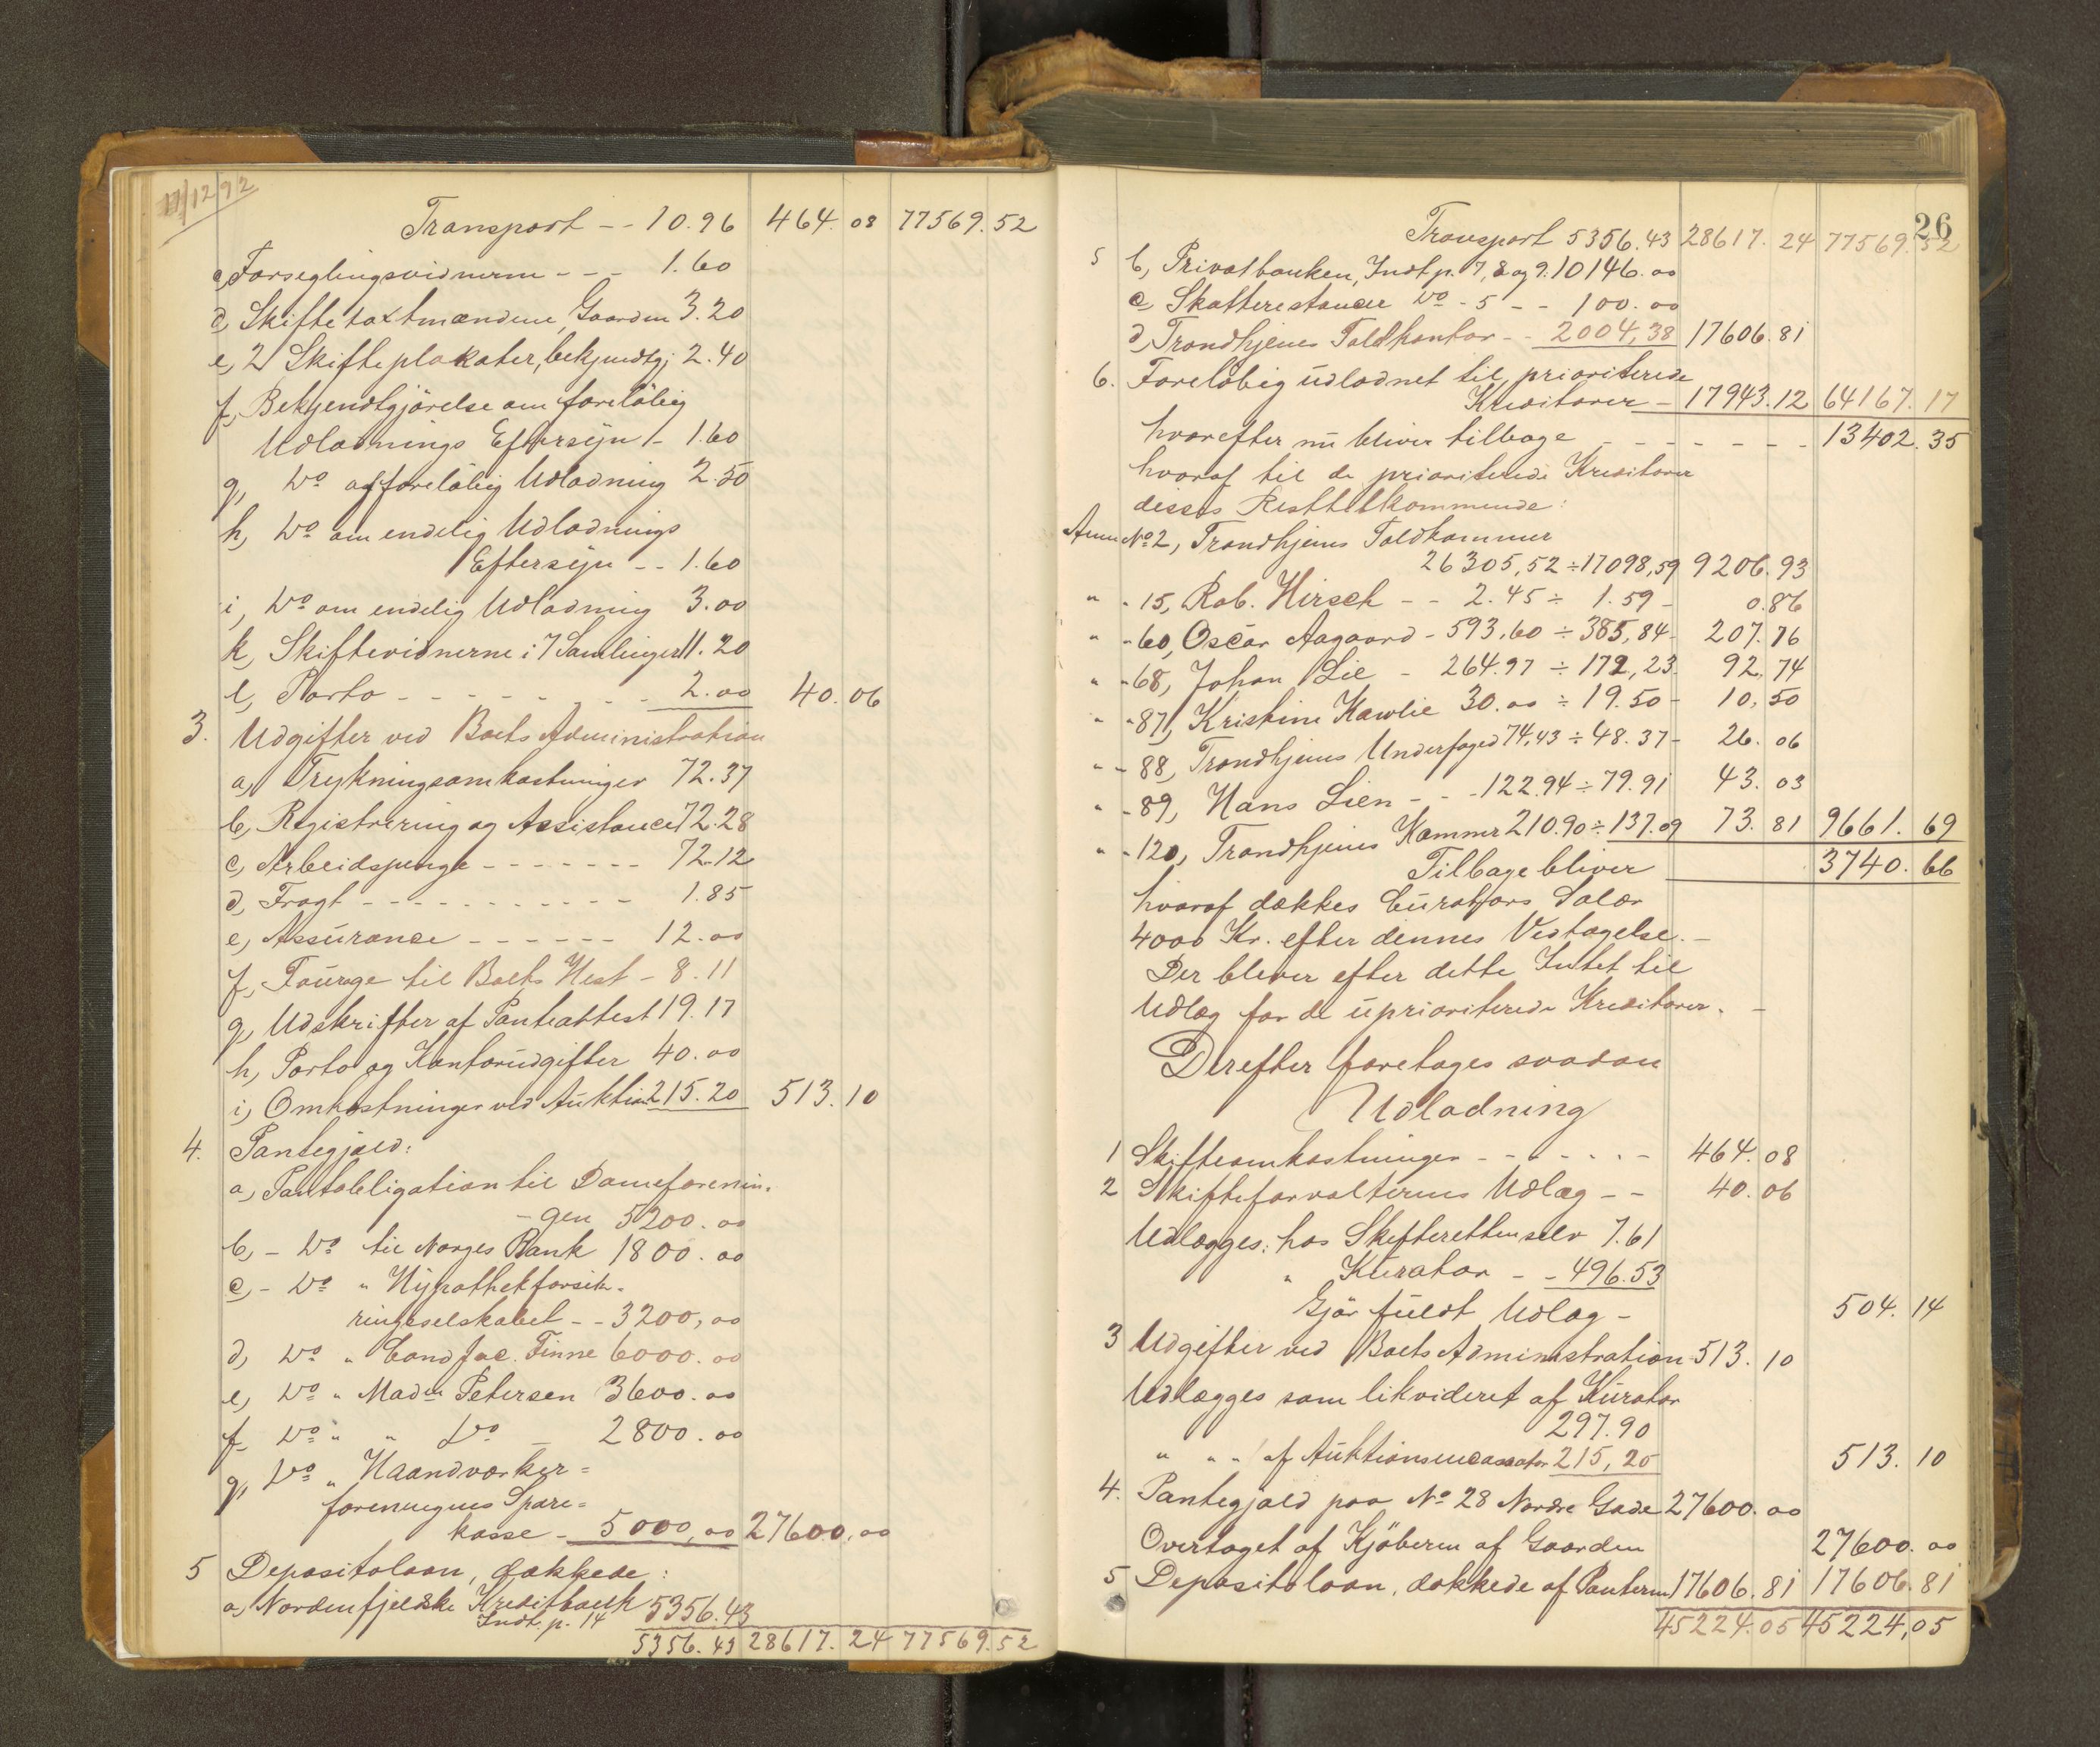 17/12 92
Transport -- 10.96 464.08 77569.52
c, Forseglingsvidnerne - - - 1.60
d, Skiftetaxtmændene, Gaarden 3.20
e, 2 Skifteplakater, bekjendtgj 2.40
f, Bekjendtgjörelse om foreløbig
Udlodnings Eftersyn - 1.60
g, Do af foreløbig Udlodning 2.50
h, Do om endelig Udlodnings
Eftersyn -- 1.60
i, Do om endelig Udlodning 3.00
k, Skiftevidnerne i 7 Samlinger 11.20
l, Porto - - - - - - 2.00 40.06
3. Udgifter ved Boets Administration
a, Trykningsomkostninger 72.37
b, Registrering og Assistance 72.28
c, Arbeidspenge - - - - - - - 72.12
d, Fragt - - - - - - - - - - - 1.85
e, Assurance - - - - - - 12.00
f, Fourage til Boets Hest - 8.11
g, Udskrifter af Panteattest 19.17
h, Porto og Kontorudgifter 40.00
i, Omkostninger ved Auktion 215.20 513.10
4. Pantegjæld:
a, Pantobligation til Dameforenin-
- gen 5200.00
b, - Do til Norges Bank 1800.00
c, - Do " Hypothekforsik-
ringsselskabet -- 3200,00
d, Do " Cand jac. Finne 6000.00
e, Do " Madm Petersen 3600.00
f, Do " " Do - 2800.00
g, Do " Haandværker=
foreningens Spare=
kasse - 5000,00 27600,00
5 Depositolaan, dækkede:
a, Nordenfjeldske Kreditbank 5356.43
Indt. p. 14
5356.43 28617.24 77569.52
26
Transport 5356.43 28617.24 77569.52
5 b, Privatbanken, Indt p. 7, 8 og 9. 10146.00
c, Skatterestancer Do - 5 - - 100.00
d, Trondhjems Toldkontor -- 2004,38 17606.81
6. Foreløbig udlodnet til prioriterede
Kreditorer - 17943.12 64167.17
hvorefter nu bliver tilbage - - - - - - - 13402.35
hvoraf til de prioriterede Kreditorer
disses Resttilkommende:
Anm No 2, Trondhjems Toldkammer
26305,52 ÷ 17098,59 9206.93
" - 15, Rob. Hirsch - - 2.45 ÷ 1.59 - 0.86
" - 60, Oscar Aagaard - 593,60 ÷ 385,84 - 207.76
" - 68, Johan Lie - 264.97 ÷ 172,23. 92,74
" - 87, Kristine Kawlie 30.00 ÷ 19.50 - 10,50
" - 88, Trondhjems Underfoged 74,43 ÷ 48.37 - 26.06
" - 89, Hans Lien - - - 122.94 ÷ 79.91 43.03
" - 120, Trondhjems Kammer 210.90 ÷ 137.09 73.81 9661.69
Tilbage bliver 3740.66
hvoraf dækkes Curators Salær
4000 Kr. efter dennes Vedtagelse. -
Der bliver efter dette Intet til
Udlæg for de uprioriterede Kreditorer. -
Derefter foretages saadan
Udlodning
1 Skifteomkostninger - - - - - - - 464.08
2 Skifteforvalterens Udlæg - - 40.06
Udlægges: hos Skifteretten selv 7.61
" Kurator - - 496.53
Gjör fuldt Udlæg - 504.14
3 Udgifter ved Boets Administration 513.10
Udlægges som likvideret af Kurator
297.90
" " " af Auktionsincassator 215,20 513.10
4. Pantegjæld paa No 28 Nordre Gade 27600.00
Overtaget af Kjöberen af Gaarden 27600.00
5 Depositolaan, dækkede af Panterne 17606.81 17606.81
45224.05 45224,05